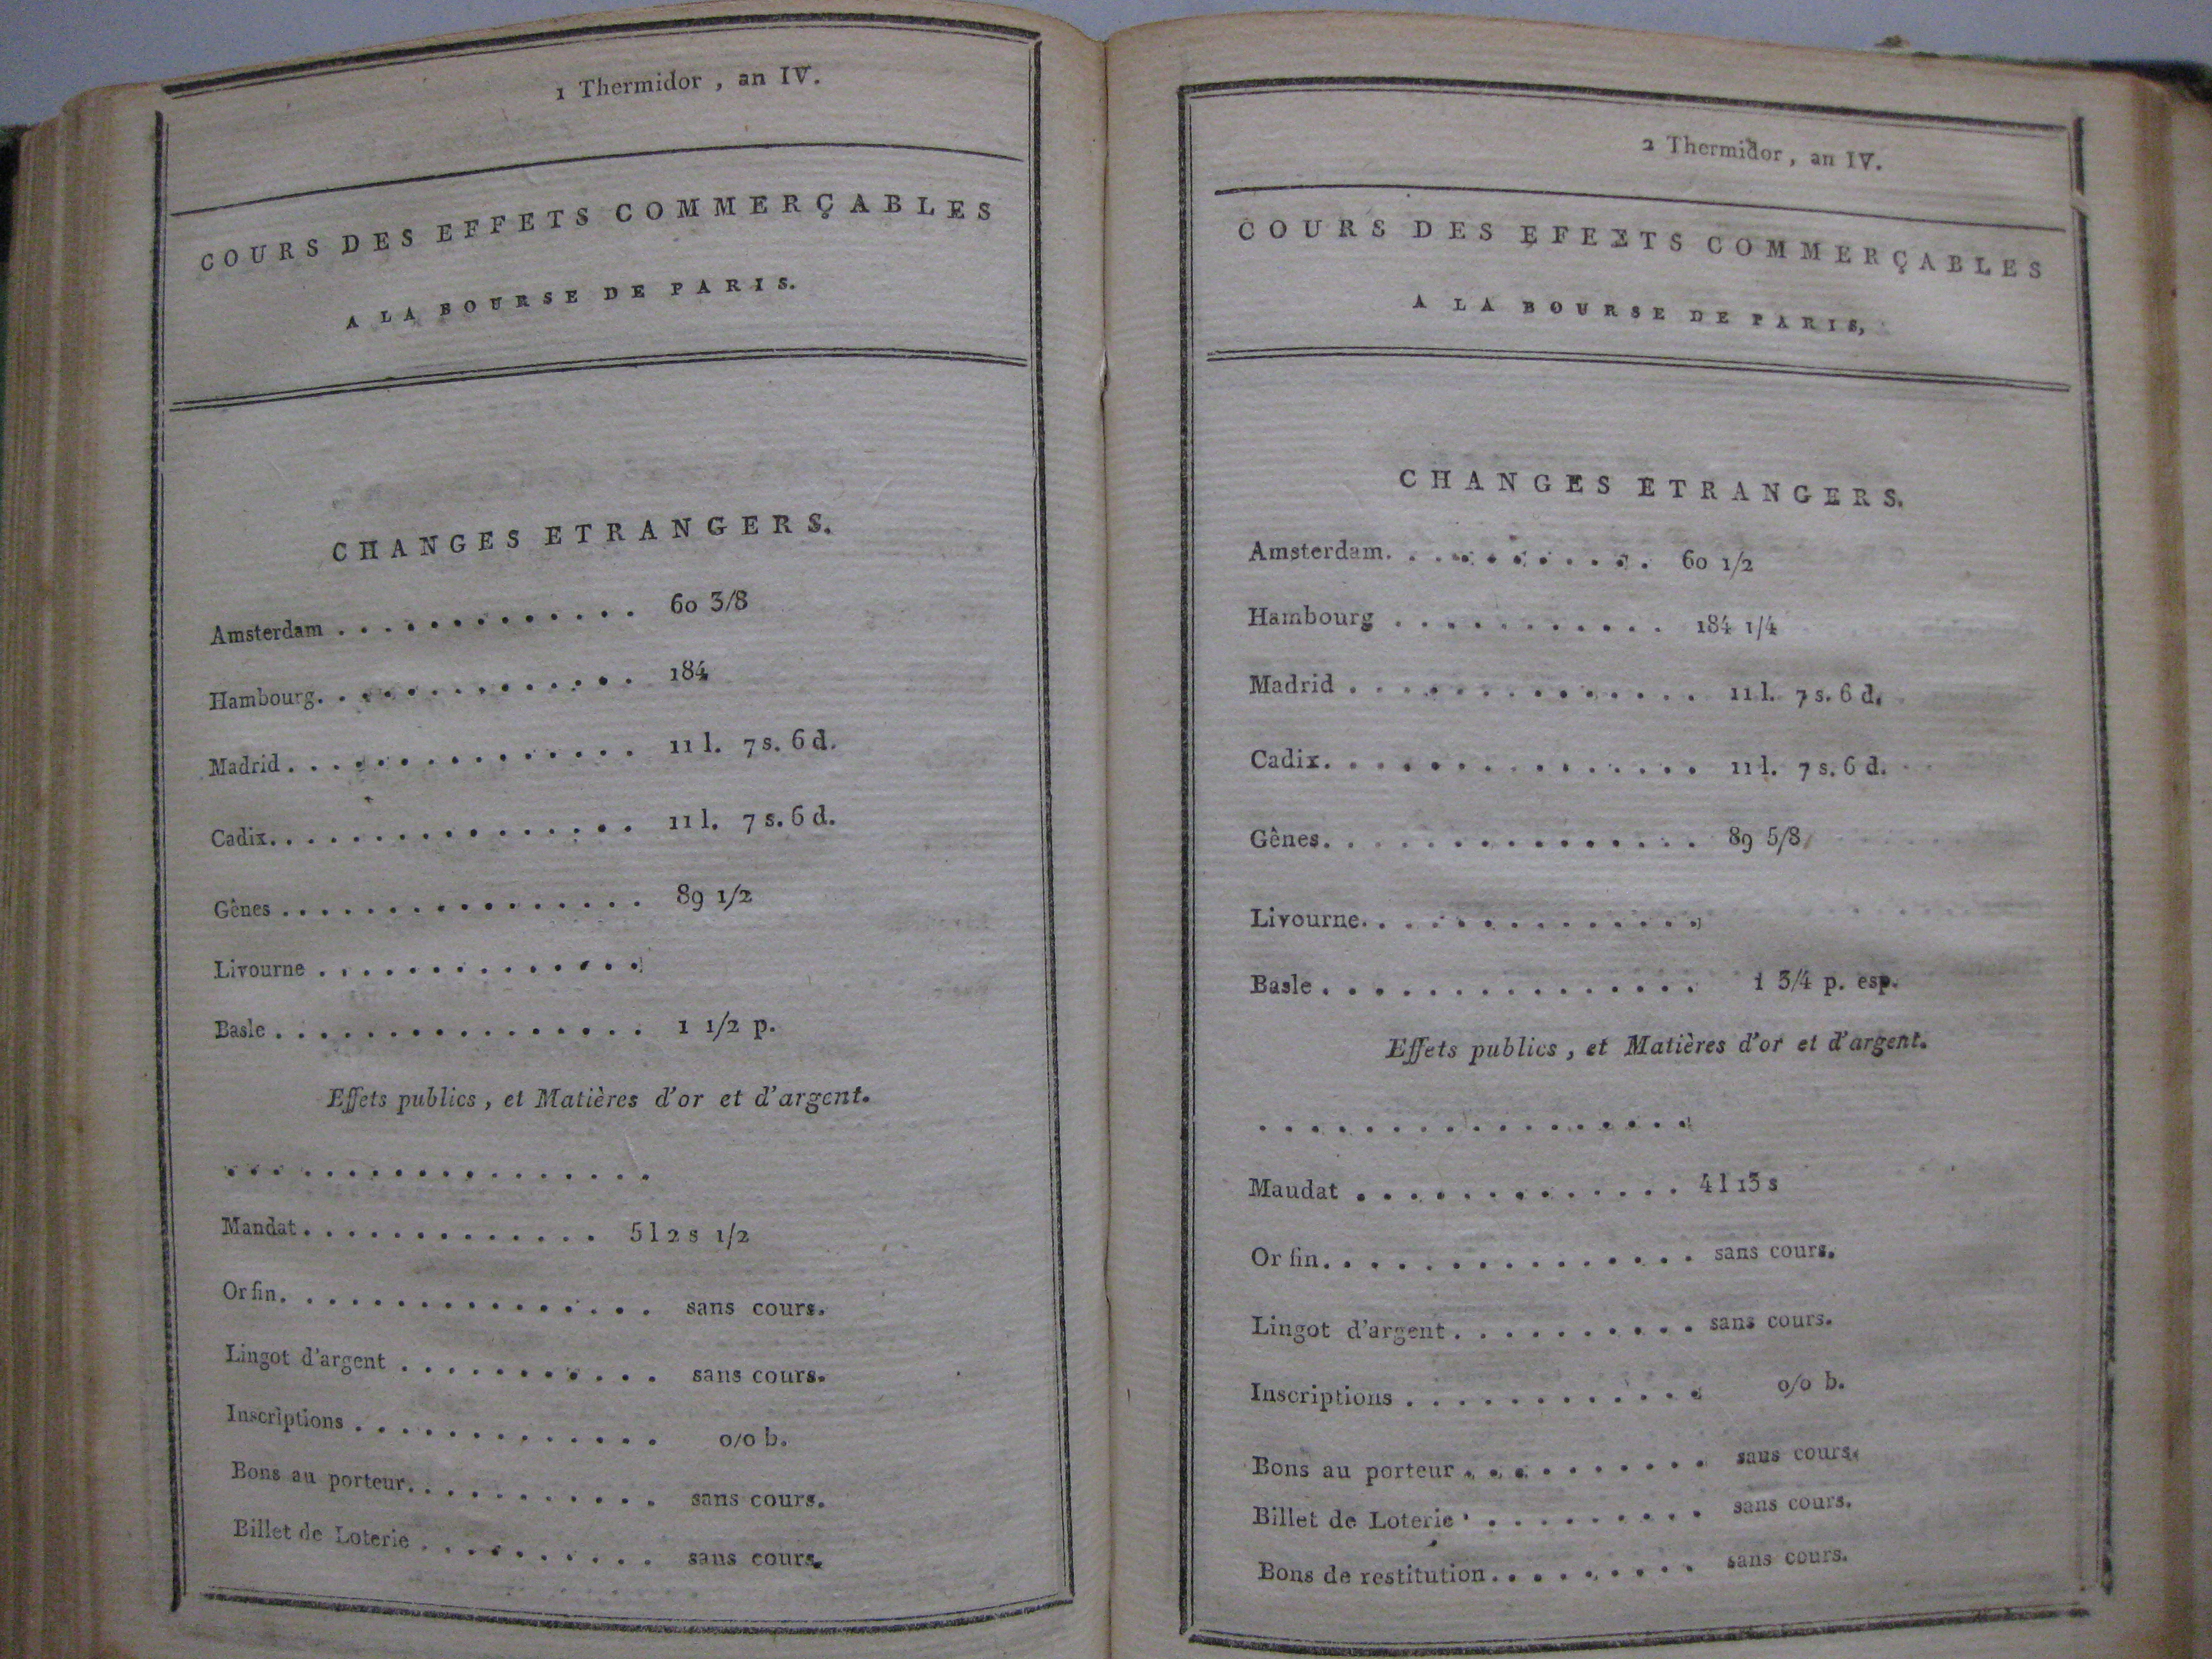 1 Thermidor , an IV.
COURS DES EFFETS COMMERÇABLES
A LA BOURSE DE PARIS.
CHANGES ETRANGERS.
Amsterdam . . . . . . . . . . . . . 60 3/8
Hambourg. . . . . . . . . . . . . . 184
Madrid . . . . . . . . . . . . . . . 11 l. 7 s. 6 d.
Cadix. . . . . . . . . . . . . . . . 11 l. 7 s. 6 d.
Gênes . . . . . . . . . . . . . . . . 89 1/2
Livourne . . . . . . . . . . . . . .
Basle . . . . . . . . . . . . . . . . 1 1/2 p.
Effets publics , et Matières d'or et d'argent.
. . . . . . . . . . . . . . . . . .
Mandat . . . . . . . . . . . . . 5 l 2 s 1/2
Or fin. . . . . . . . . . . . . . . . sans cours.
Lingot d'argent . . . . . . . . . . . sans cours.
Inscriptions . . . . . . . . . . . . . o/o b.
Bons au porteur. . . . . . . . . . . . sans cours.
Billet de Loterie . . . . . . . . . . sans cours.
2 Thermidor , an IV.
COURS DES EFEETS COMMERÇABLES
A LA BOURSE DE PARIS,
CHANGES ETRANGERS.
Amsterdam. . . . . . . . . . . 60 1/2
Hambourg . . . . . . . . . . . 184 1/4
Madrid . . . . . . . . . . . . . . 11 l. 7 s. 6 d.
Cadix. . . . . . . . . . . . . . . 11 l. 7 s. 6 d.
Gênes. . . . . . . . . . . . . . . 89 5/8
Livourne. . . . . . . . . . . . . .
Basle . . . . . . . . . . . . . . . 1 3/4 p. esp.
Effets publics , et Matières d'or et d'argent.
. . . . . . . . . . . . . . . . .
Maudat . . . . . . . . . . . . . 4 l 13 s
Or fin. . . . . . . . . . . . . . . sans cours.
Lingot d'argent . . . . . . . . . . sans cours.
Inscriptions . . . . . . . . . . . . o/o b.
Bons au porteur . . . . . . . . . . sans cours.
Billet de Loterie . . . . . . . . . sans cours.
Bons de restitution . . . . . . . . . sans cours.